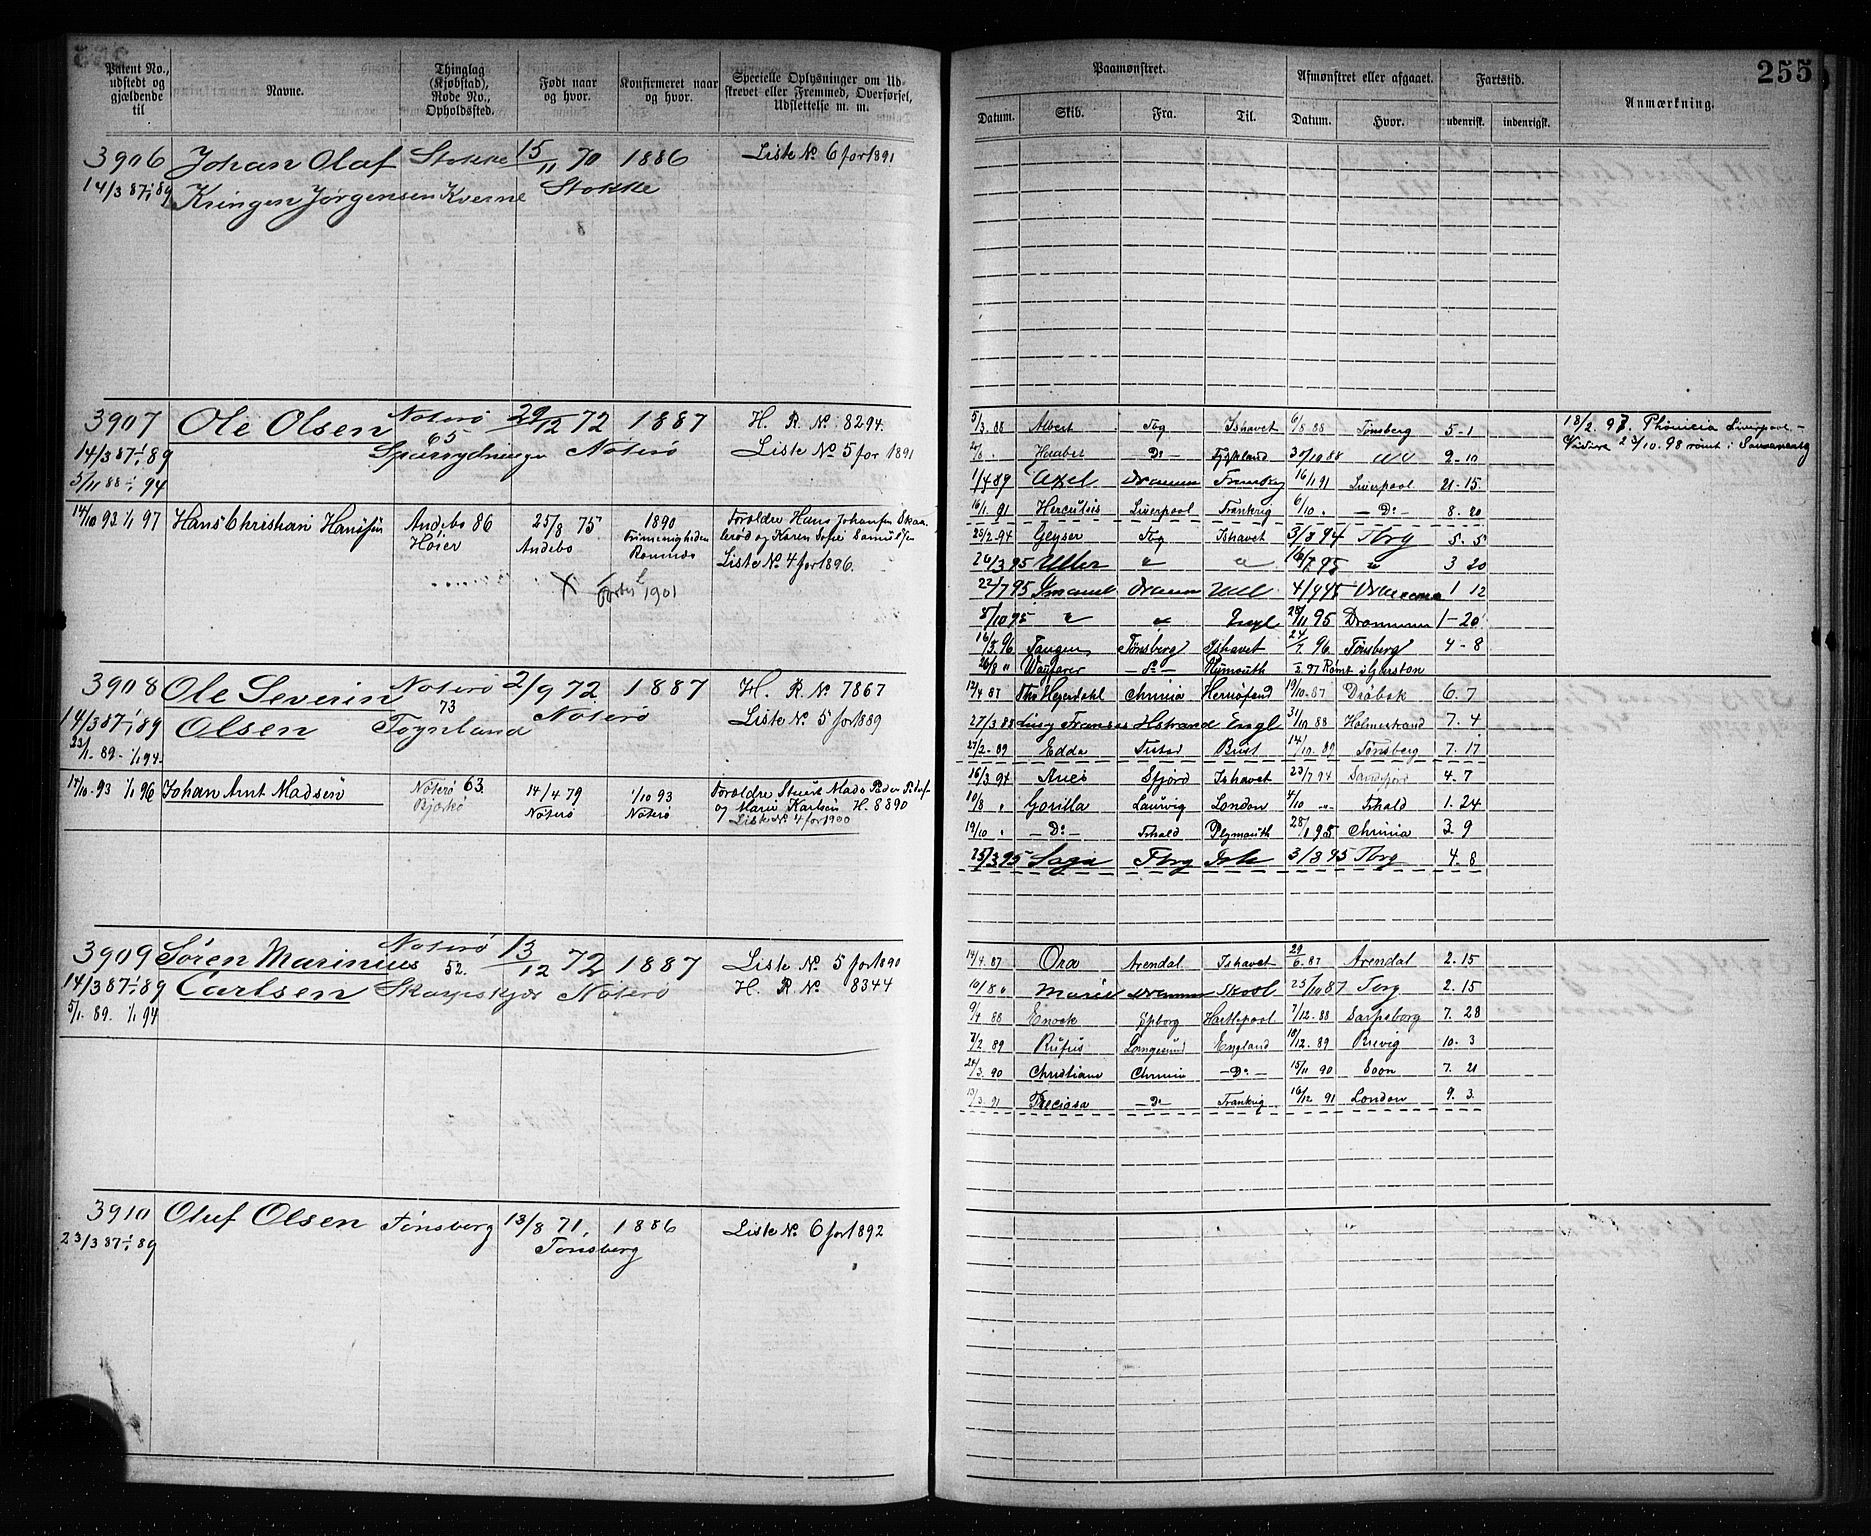 255
Patent No., udstedt og gjældende til
Navne.
Thinglag (Kjøbstad), Rode No., Opholdssted.
Født naar og hvor.
Konfirmeret naar og hvor.
Specielle Oplysninger om Udstrevet eller Fremmed, Overførsel, Udslettelse m. m.
Paamønstret.
Datum. Skib. Fra. Til.
Afmønstret eller afgaaet.
Datum. Hvor.
Fartstid.
udenriks. indenrigsk.
Anmærkning.
3906 Johan Olaf Stokke 15/11 70 1886 Liste No 6 for 1891
14/3 87 1/1 89 Kringen Jørgensen Kverne Stokke
3907 Ole Olsen Noterø 65 29/12 72 1887 H. R. No: 8294.
14/3 87 1/1 89 Noterø Liste No 5 for 1891
5/11 88 1/1 94
14/10 93 1/1 97 Hans Christian Hansen Andebo 86 25/8 75 1890 Forældre Hans Johansen
Høier Andebo og Karen Sofie
Liste No 4 for 1896.
X 1901
3908 Ole Severin Noterø 73 2/9 72 1887 H. R. No 7867
14/3 87 1/1 89 Olsen Noterø Liste No 5 for 1889
23/1 89 - 1/1 94
14/10 93 1/1 96 Johan Arnt Madsen Noterø 63 14/4 79 1/10 93 Forældre
Noterø Noterø og Marie Karlsen H. 8890
Liste No 4 for 1900
3909 Søren Marinius Noterø 52. 13/12 72 1887 Liste No 5 for 1890
14/3 87 1/1 89 Carlsen Noterø H. R. No 8344
5/1 89. 1/1 94
3910 Oluf Olsen Tønsberg 13/8 71 1886 Liste No 6 for 1892
23/3 87 1/1 89 Tønsberg
5/3 88 Albert Tbg Ishavet 6/8 88 Tønsberg 5-1
18/2 97. Liverpool
23/10. 98 rømt i
Haabet Do 2-10
1/4 89 Axel Dramm 16/1 91 Liverpool 21-15
16/1 91 Hercules Liverpool Frankrig 6/10 Do 8.20
25/2 94 Geyser Tbg Ishavet 3/8 94 Tbrg 5.5
26/3 95 Uller 16/7 95 3 20
22/7 95 Dramm 1 12
8/10 95 Engl 28/11 95 Drammen 1-20
16/3 96 Tangen Tønsberg Ishavet 24/7 96 Tønsberg 4-8
26/8 Wayfarer Do Plymouth Rømt i
12/4 87 Ths Heyerdahl Chrinia 19/10-87 Drøbak 6.7
27/3 88 Hstrand Engl 31/10 88 Holmestrand 7.4
27/2-89 Edda Brist 14/10 89 Tønsberg 7.17
16/3 94 Sfjord Ishavet 23/7 94 Sandefjord 4-7
10/8 Gorilla Laurvig London 4/10 Fshald 1.24
19/10 Do Fshald Plymouth 28/1 95 Chrinia 3 9
25/3 95 Saga Tbrg 3/8 95 Tbrg 4.8
14/4 87 Ora Arendal Ishavet 29/6 87 Arendal 2.15
10/8 Marie Dramm 23/10 87 Tbrg 2.15
9/4 88 Enock Hartlepool 7/12-88 Sarpsborg 7.28
2/2 89 Rufus Langesund England 18/12-89 Brevig 10.3
24/3. 90 Christiane Chrinia Do 15/11 90 7.21
13/3 91 Preciosa Do Frankrig 16/12 91 London 9.3